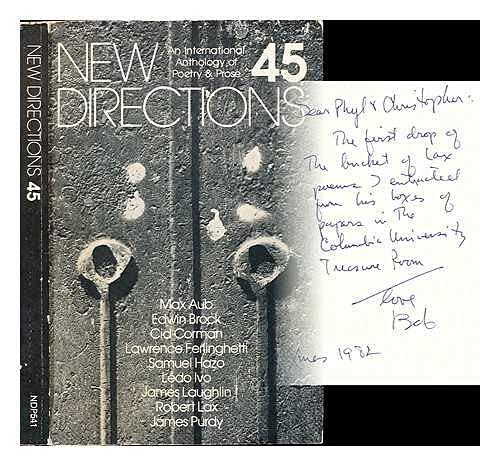 NEW DIRECTIONS 45
NDP541
NEW
DIRECTIONS
An International
Anthology of
Poetry & Prose
45
Max Aub
Edwin Brock
Cid Corman
Lawrence Ferlinghetti
Samuel Hazo
Lêdo Ivo
James Laughlin
Robert Lax
James Purdy
Dear Phyl & Christopher:
The first drop of
The bucket of Lax
poems I extracted
from his boxes of
papers in The
Columbia University
Treasure Room
Love
Bob
1982